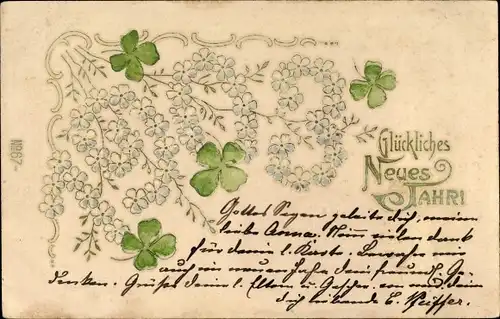 1903
Glückliches
Neues
Jahr!
Nº 67
Gottes Segen geleite dich, meine
liebe Anna. Nimm vielen dank
für deine l. Karte. Bewahre mir
auch im neuen Jahre dein freundl. Ge-
denken. Grüsse deine l. Eltern u. Geschw. von mir, deine
dich liebende E. Pfeiffer.